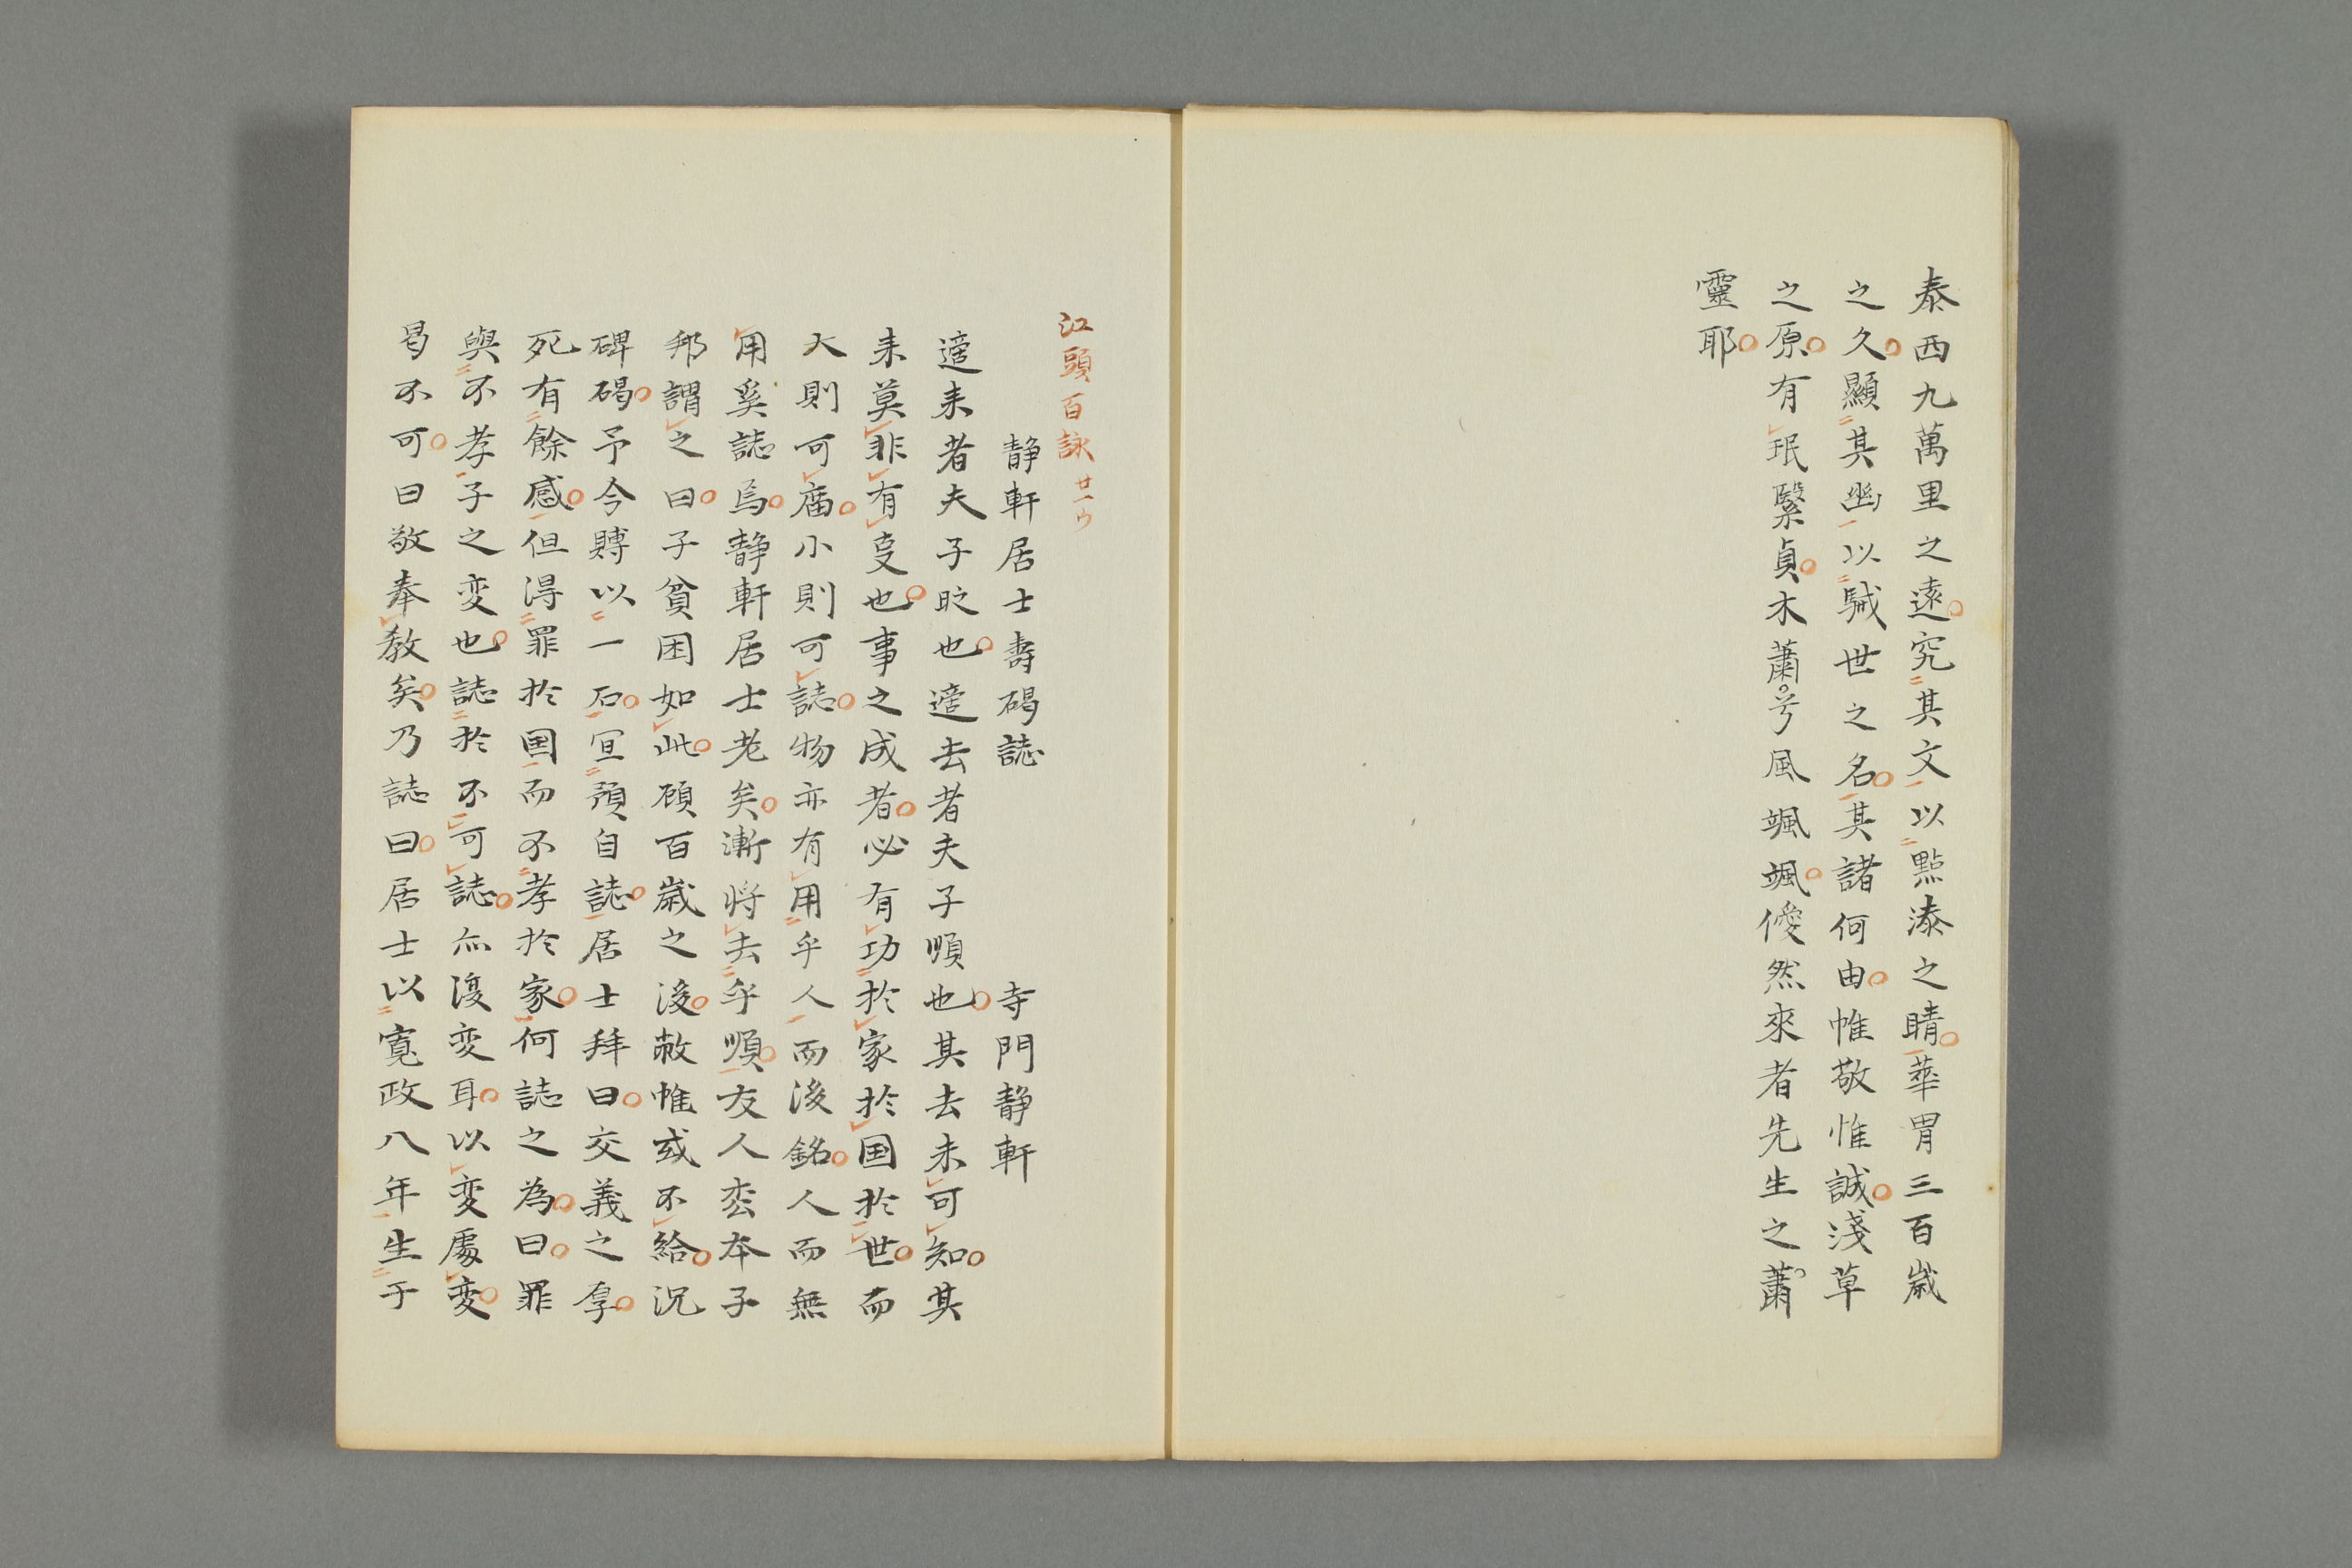 泰西九萬里之遠究其文以點漆之睛華胄三百歳
之久顯其幽以駴世之名其諸何由惟敬惟誠淺草
之原有珉緊貞木蕭兮風颯颯僾然來者先生之蕭
靈耶
江頭百詠廿一ウ
静軒居士壽碣誌 寺門静軒
適来者夫子时也適去者夫子順也其去未可知其
来莫非有㕝也事之成者必有功於家於国於世而
大則可廟小則可誌物亦有用乎人而後銘人而無
用奚誌焉静軒居士老矣漸将去乎順友人本子
邦謂之曰子貧困如此顧百歳之後敝帷或不給況
碑碣予今賻以一石宜預自誌居士拜曰交義之厚
死有餘感但得罪於国而不孝於家何誌之為曰罪
與不孝子之变也誌於不可誌亦復变耳以变處变
曷不可曰敬奉教矣乃誌曰居士以寛政八年生于